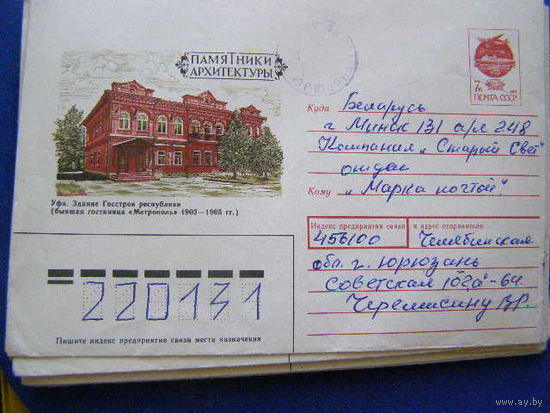 ПАМЯТНИКИ
АРХИТЕКТУРЫ
7к
ПОЧТА СССР
Уфа. Здание Госстроя республики
(бывшая гостиница «Метрополь» 1903—1905 гг.)
Куда Беларусь
г Минск 131 а/я 248
Компания „Старый Свет"
отдел
Кому „Марка почтой"
Индекс предприятия связи и адрес отправителя
456100 Челябинская
обл. г. Юрюзань
Советская 108а - 64
Черемисину В.Р.
220131
Пишите индекс предприятия связи места назначения
www.ay.by